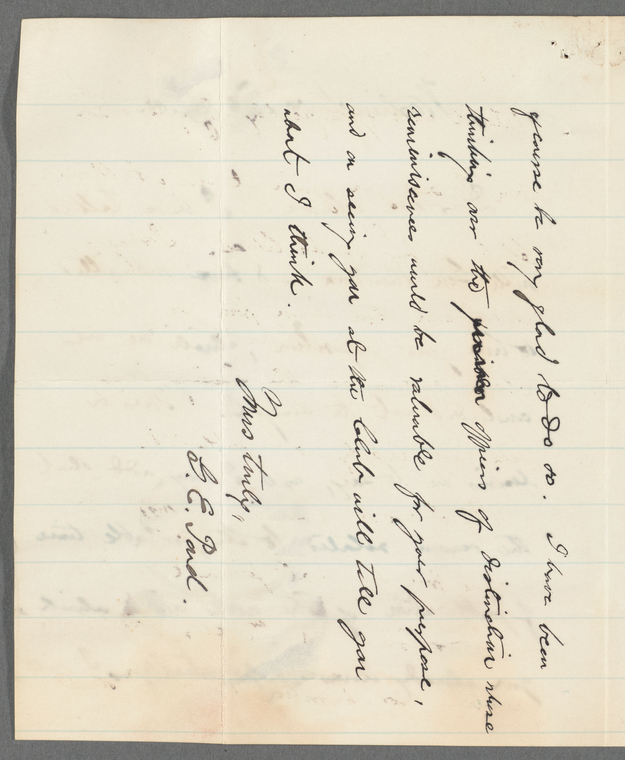 of course be very glad to do so. I have been
thinking over the officers of distinction whose
reminiscences would be valuable for your purpose,
and on seeing you at the Club will tell you
what I think.
Yours truly,
G. E. Pond.